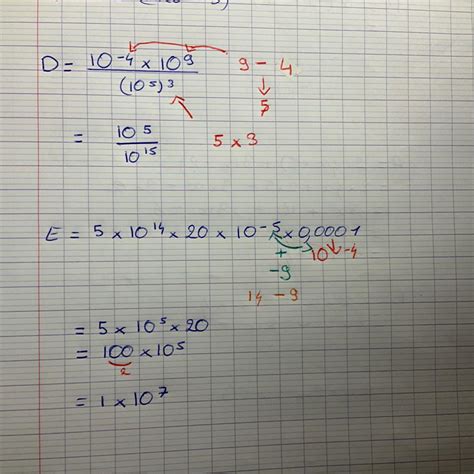 D = 10^-4 × 10^9 / (10^5)^3 9 - 4
5
= 10^5 / 10^15 5 × 3
E = 5 × 10^14 × 20 × 10^-5 × 0,0001
+ 10^-4
-9
14 - 9
= 5 × 10^5 × 20
= 100 × 10^5
2
= 1 × 10^7